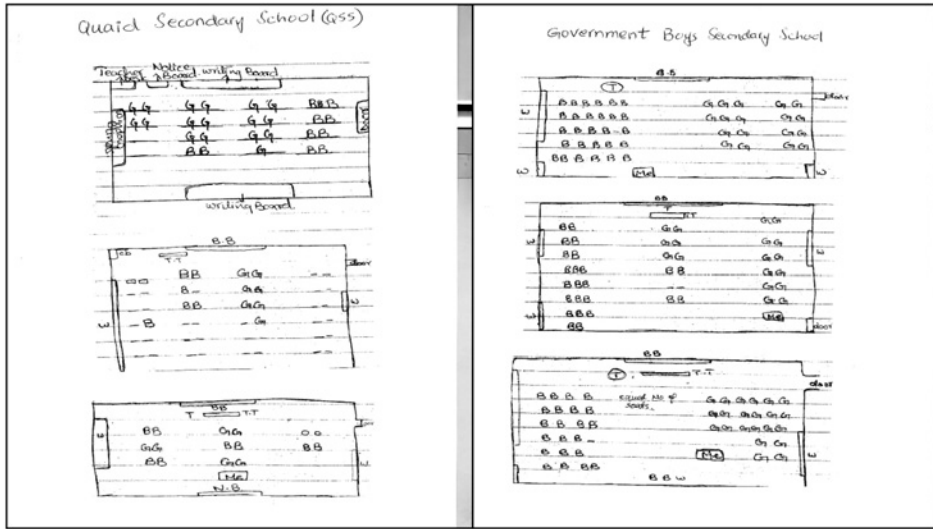 Quaid Secondary School (QSS)
Teacher Notice
Board writing Board
G G G G G G B B B
G G G G G G B B
G G G G B B
B B G B B
writing Board
B.B
cb T.T door
BB GG --
-- B- GG --
-- BB GG --
W W
-B -- -G --
-- -- -- --
BB
T T.T
BB GG oo
GG BB BB
BB GG
Me
N.B
Government Boys Secondary School
B.B
T door
B B B B B B G G G G G
B B B B B B G G G G G
B B B B - B G G G G
B B B B B G G G G
B B B B B B
W Me W
BB
T T.T
GG
BB GG
BB GG GG
BB GG GG
BBB BB GG
BBB -- GG
BBB BB GG
BBB Me
BB door
BB
T T.T
door
B B B B Equal No of G G G G G G
B B B B seats. G G G G G G
B B B B G G G G G G
B B B - G G
B B B Me G G
B B B B
B B W